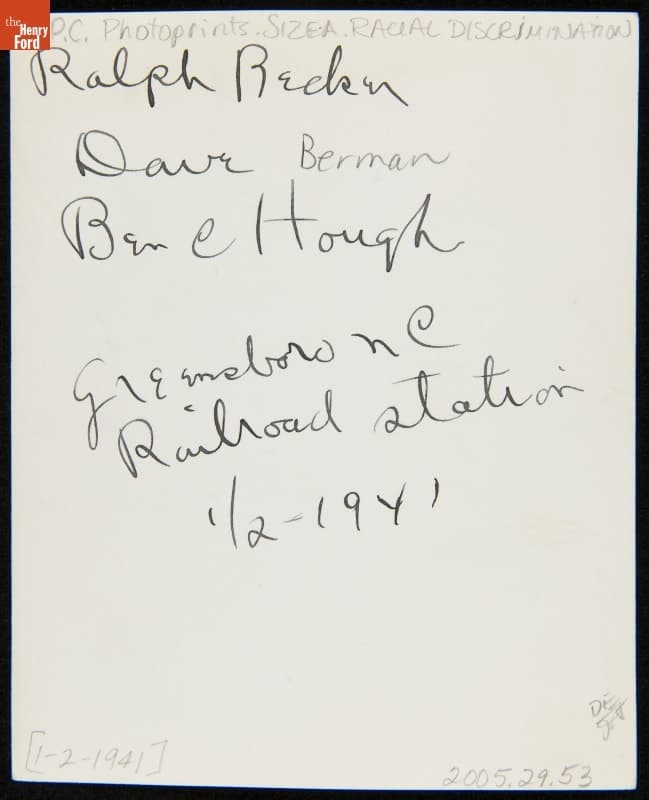 the
Henry
Ford
P.C. Photoprints. SIZE A. RACIAL DISCRIMINATION
Ralph Becker
Dave Berman
Ben C Hough
Greensboro N C
Railroad station
1/2-1941
[1-2-1941]
2005.29.53